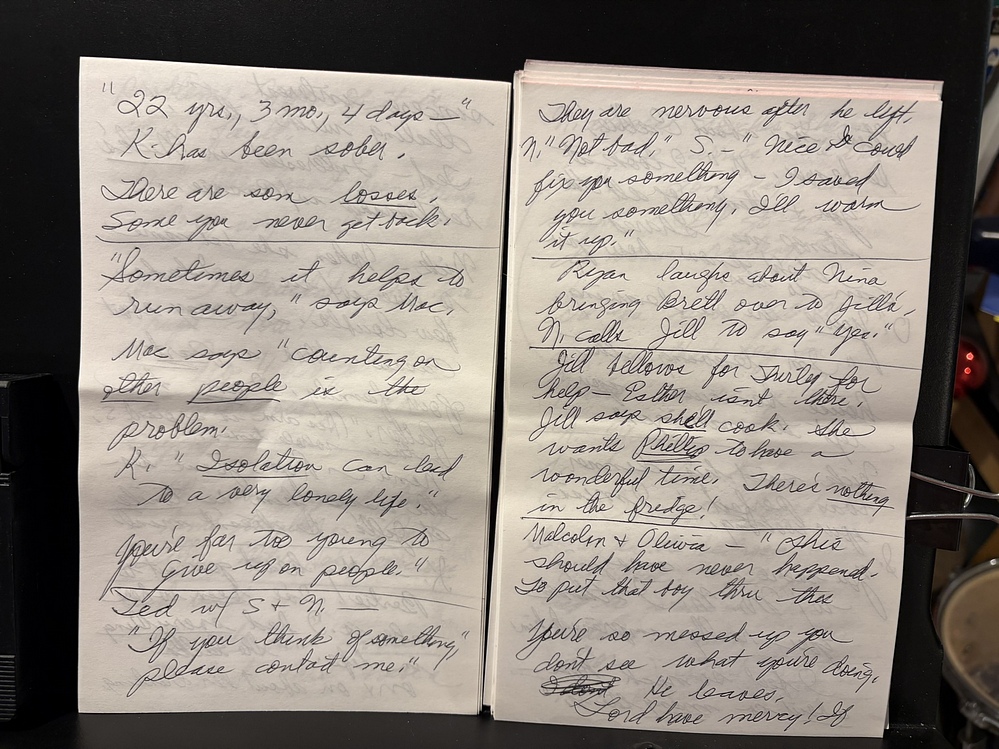 "22 yrs., 3 mo., 4 days — "
K. has been sober.
There are som losses.
Some you never get back.
"Sometimes it helps to
run away," says Mac.
Mac says "counting on
other people is the
problem.
K. "Isolation can lead
to a very lonely life."
You're far too young to
give up on people."
Ted w/ S + N. —
"If you think of something,
please contact me."
They are nervous after he left.
N. "Not bad." S. - " Nice I could
fix you something - I saved
you something. I'll warm
it up."
Ryan laughs about Nina
bringing Brett over to Jill's.
N. calls Jill to say "yes."
Jill bellows for Turley for
help - Esther isn't there.
Jill says she'll cook. She
wants Phillip to have a
wonderful time. There's nothing
in the fridge!
Malcolm + Olivia - "This
should have never happened.
To put that boy thru this
You're so messed up you
don't see what you're doing.
He leaves.
Lord have mercy! If